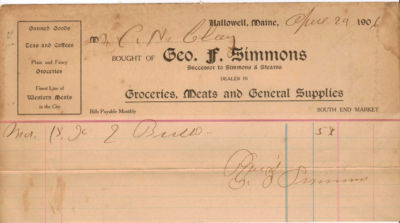 Canned Goods
Teas and Coffees
Plain and Fancy
Groceries
Finest Line of
Western Meats
in the City
Hallowell, Maine, April 24 190
M C. N. Clay
BOUGHT OF GEO. F. SIMMONS
Successor to Simmons & Stearns
DEALER IN
Groceries, Meats and General Supplies
Bills Payable Monthly SOUTH END MARKET
Mar. 18 58
Simmons